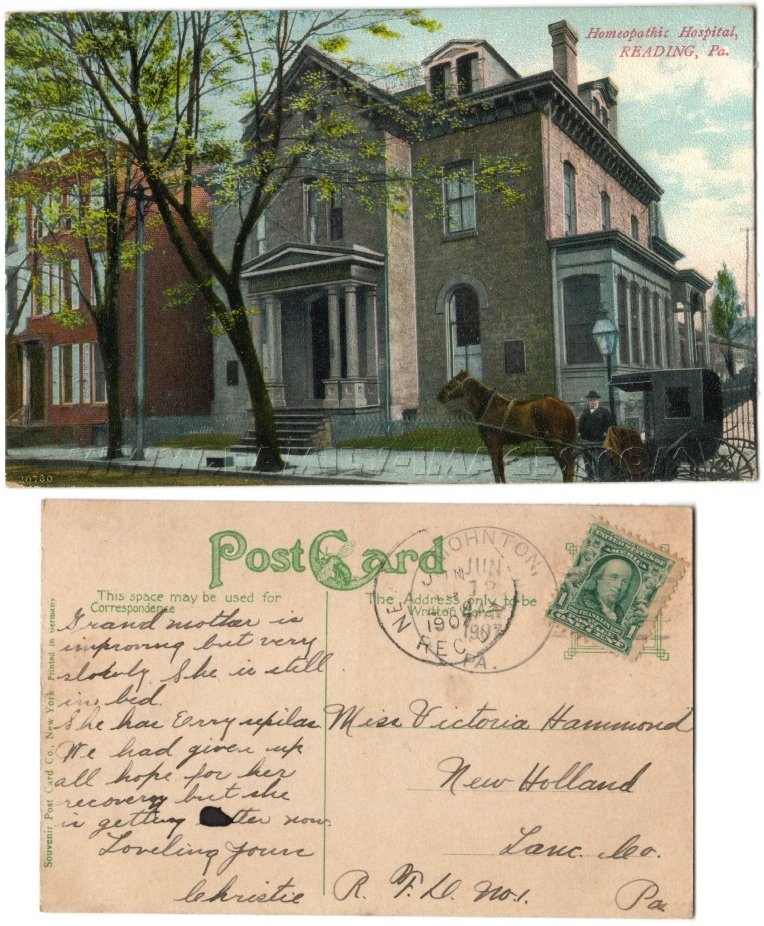 Homeopathic Hospital,
READING, Pa.
20780
Post Card
This space may be used for
Correspondence
The Address only to be
Written here
JUN
1907
REC
PA.
1
Souvenir Post Card Co., New York. Printed in Germany.
Grand mother is
improving but very
slowly. She is still
in bed.
She has Erry sepilas
We had given up
all hope for her
recovery but she
is getting tter now.
Loveling Yours
Christie
Miss Victoria Hammond
New Holland
Lanc. Co.
R. F. D. No. 1.
Pa